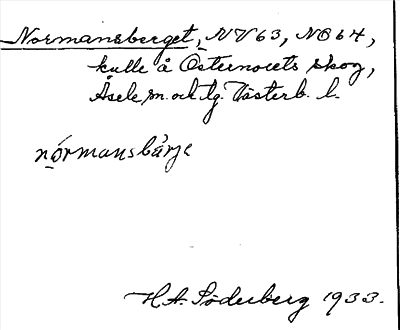 Normansberget, NV63, NO64,
kulle å Östernorets skog,
Åsele sn. och tg. Västerb. l.
nórmansbärje
H.A. Söderberg 1933.